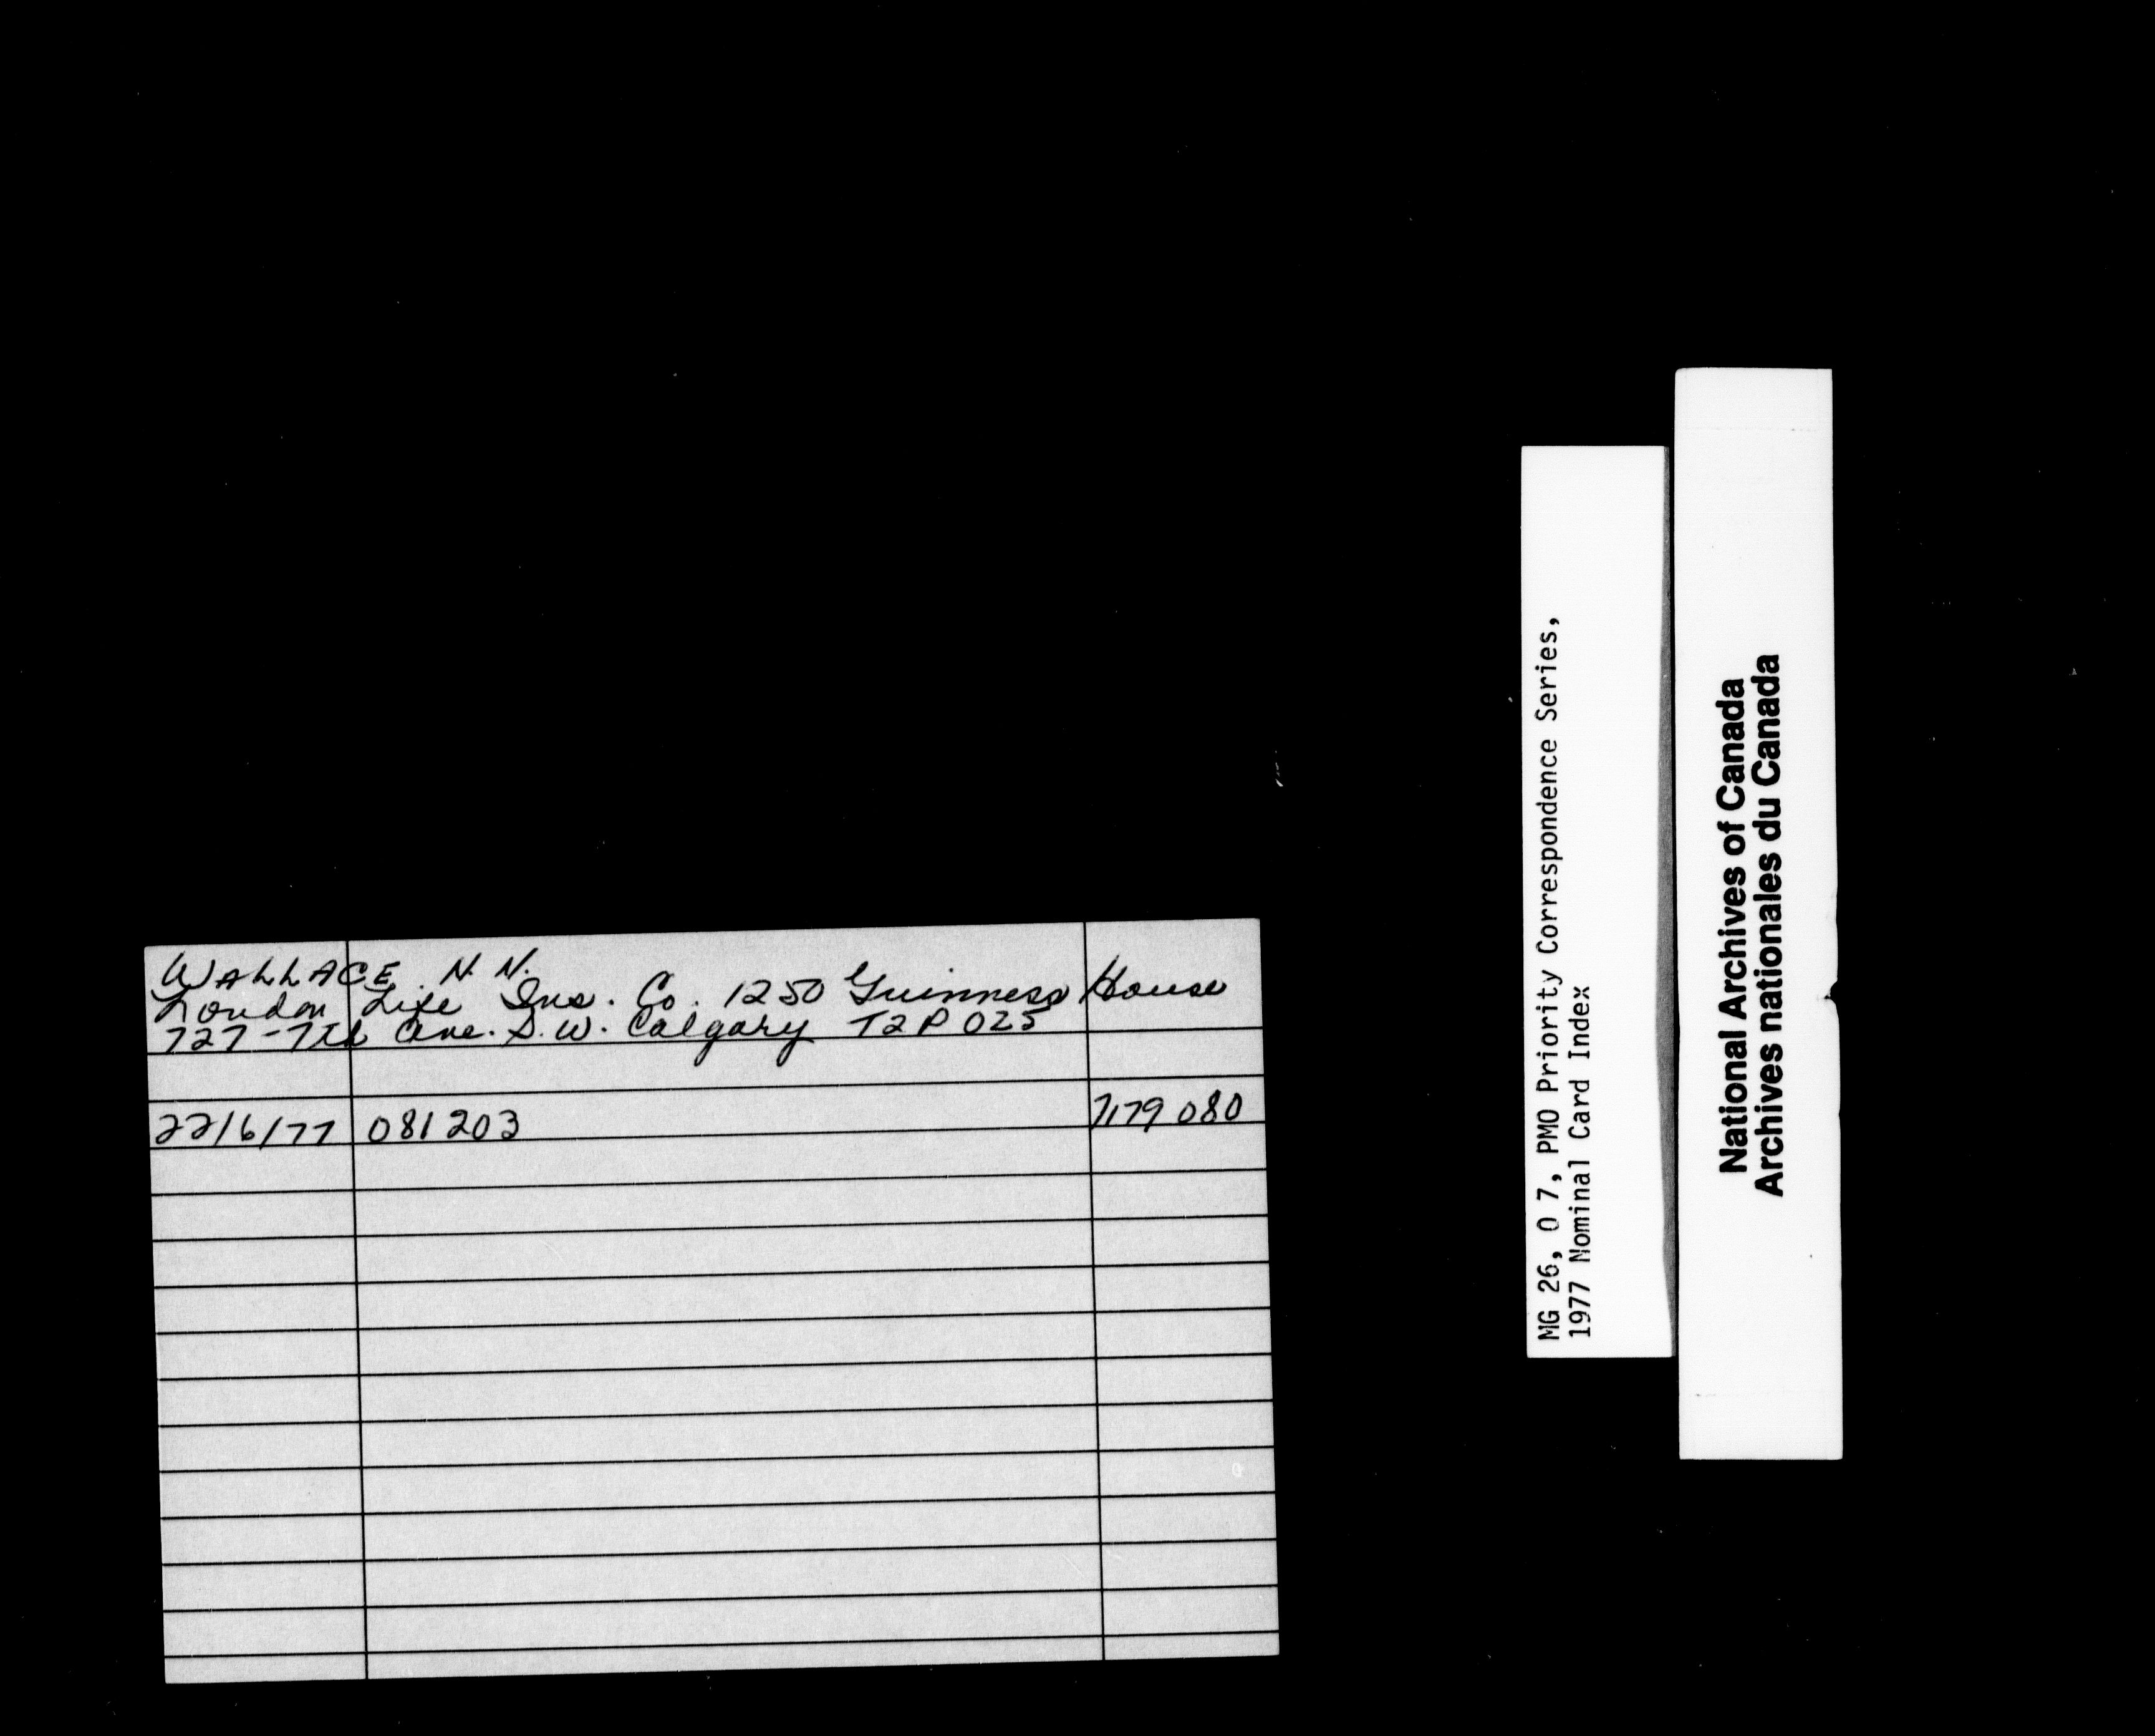 WALLACE, N. N.
London Life Ins. Co. 1250 Guinness House
727-7th Ave. S.W. Calgary T2P 0Z5
22/6/77 081203 7179 080
MG 26, O 7, PMO Priority Correspondence Series,
1977 Nominal Card Index
National Archives of Canada
Archives nationales du Canada